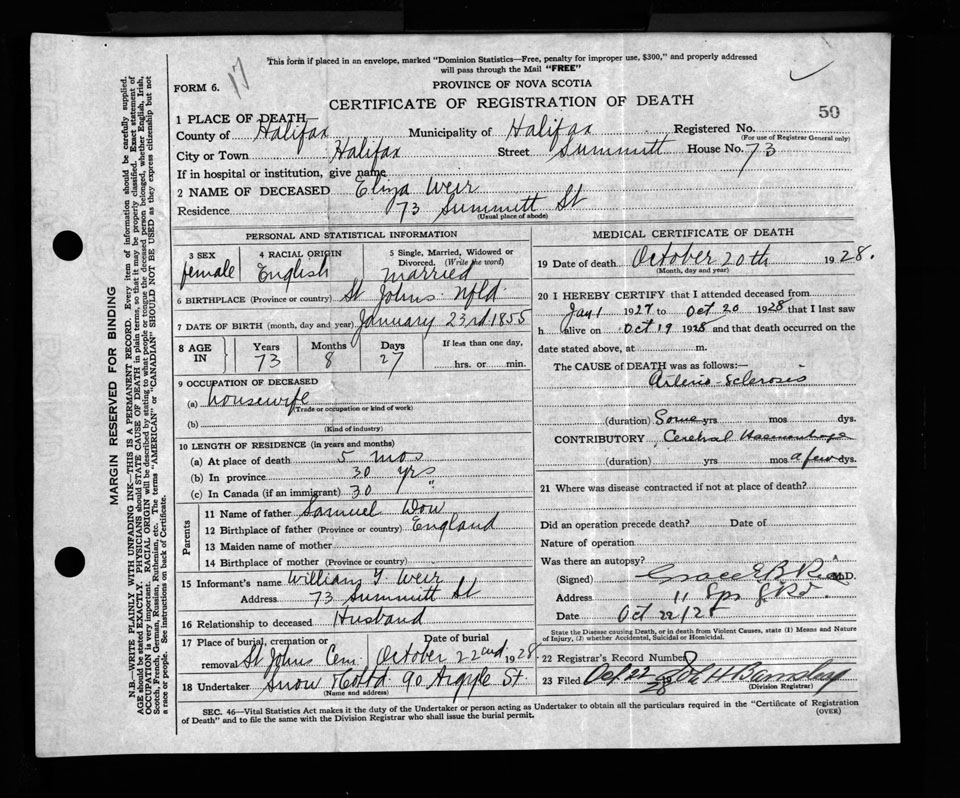 17
This form if placed in an envelope, marked "Dominion Statistics—Free, penalty for improper use, $300," and properly addressed
will pass through the Mail "FREE"
FORM 6.
PROVINCE OF NOVA SCOTIA
CERTIFICATE OF REGISTRATION OF DEATH
50
1 PLACE OF DEATH
County of Halifax Municipality of Halifax Registered No.
(For use of Registrar General only)
City or Town Halifax Street Summitt House No. 73
If in hospital or institution, give name
2 NAME OF DECEASED Eliza Weir
Residence 73 Summitt St
(Usual place of abode)
PERSONAL AND STATISTICAL INFORMATION
3 SEX female
4 RACIAL ORIGIN English
5 Single, Married, Widowed or
Divorced. (Write the word)
married
6 BIRTHPLACE (Province or country) St Johns Nfld.
7 DATE OF BIRTH (month, day and year) January 23rd 1855
8 AGE IN
Years 73
Months 8
Days 27
If less than one day,
hrs. or min.
9 OCCUPATION OF DECEASED
(a) housewife
(Trade or occupation or kind of work)
(b)
(Kind of industry)
10 LENGTH OF RESIDENCE (in years and months)
(a) At place of death 5 mos
(b) In province 30 yrs
(c) In Canada (if an immigrant) 30 "
Parents
11 Name of father Samuel
12 Birthplace of father (Province or country) England
13 Maiden name of mother
14 Birthplace of mother (Province or country)
15 Informant's name William Weir
Address 73 Summitt St
16 Relationship to deceased Husband
17 Place of burial, cremation or
removal St Johns Cem.
Date of burial
October 22nd 1928
18 Undertaker Snow 90 Argyle St.
(Name and address)
MEDICAL CERTIFICATE OF DEATH
19 Date of death October 20th 1928.
(Month, day and year)
20 I HEREBY CERTIFY that I attended deceased from
Jan 1 1927 to Oct 20 1928 that I last saw
h alive on Oct 19 1928 and that death occurred on the
date stated above, at m.
The CAUSE of DEATH was as follows:—
Arterio-Sclerosis
(duration) Some yrs mos dys.
CONTRIBUTORY Cerebral Haemorrhage
(duration) yrs mos a few dys.
21 Where was disease contracted if not at place of death?
Did an operation precede death? Date of
Nature of operation
Was there an autopsy?
(Signed) M.D.
Address
Date Oct 22/28
State the Disease causing Death, or in death from Violent Causes, state (1) Means and Nature
of Injury, (2) whether Accidental, Suicidal or Homicidal.
22 Registrar's Record Number
23 Filed
(Division Registrar)
SEC. 46—Vital Statistics Act makes it the duty of the Undertaker or person acting as Undertaker to obtain all the particulars required in the "Certificate of Registration
of Death" and to file the same with the Division Registrar who shall issue the burial permit.
(OVER)
MARGIN RESERVED FOR BINDING
N.B.—WRITE PLAINLY WITH UNFADING INK—THIS IS A PERMANENT RECORD. Every item of information should be carefully supplied.
AGE should be stated EXACTLY. PHYSICIANS should STATE CAUSE OF DEATH in plain terms, so that it may be properly classified. Exact statement of
OCCUPATION is very important. RACIAL ORIGIN will be described by stating to what people or tongue the deceased person belonged, whether English, Irish,
Scotch, French, German, Russian, Ruthenian, etc. The terms "AMERICAN" or "CANADIAN" SHOULD NOT BE USED as they express citizenship but not
a race or people. See instructions on back of Certificate.